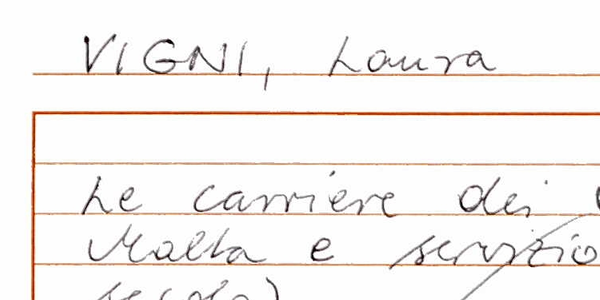 VIGNI, Laura
Le carriere dei
Malta e servizio
secolo)